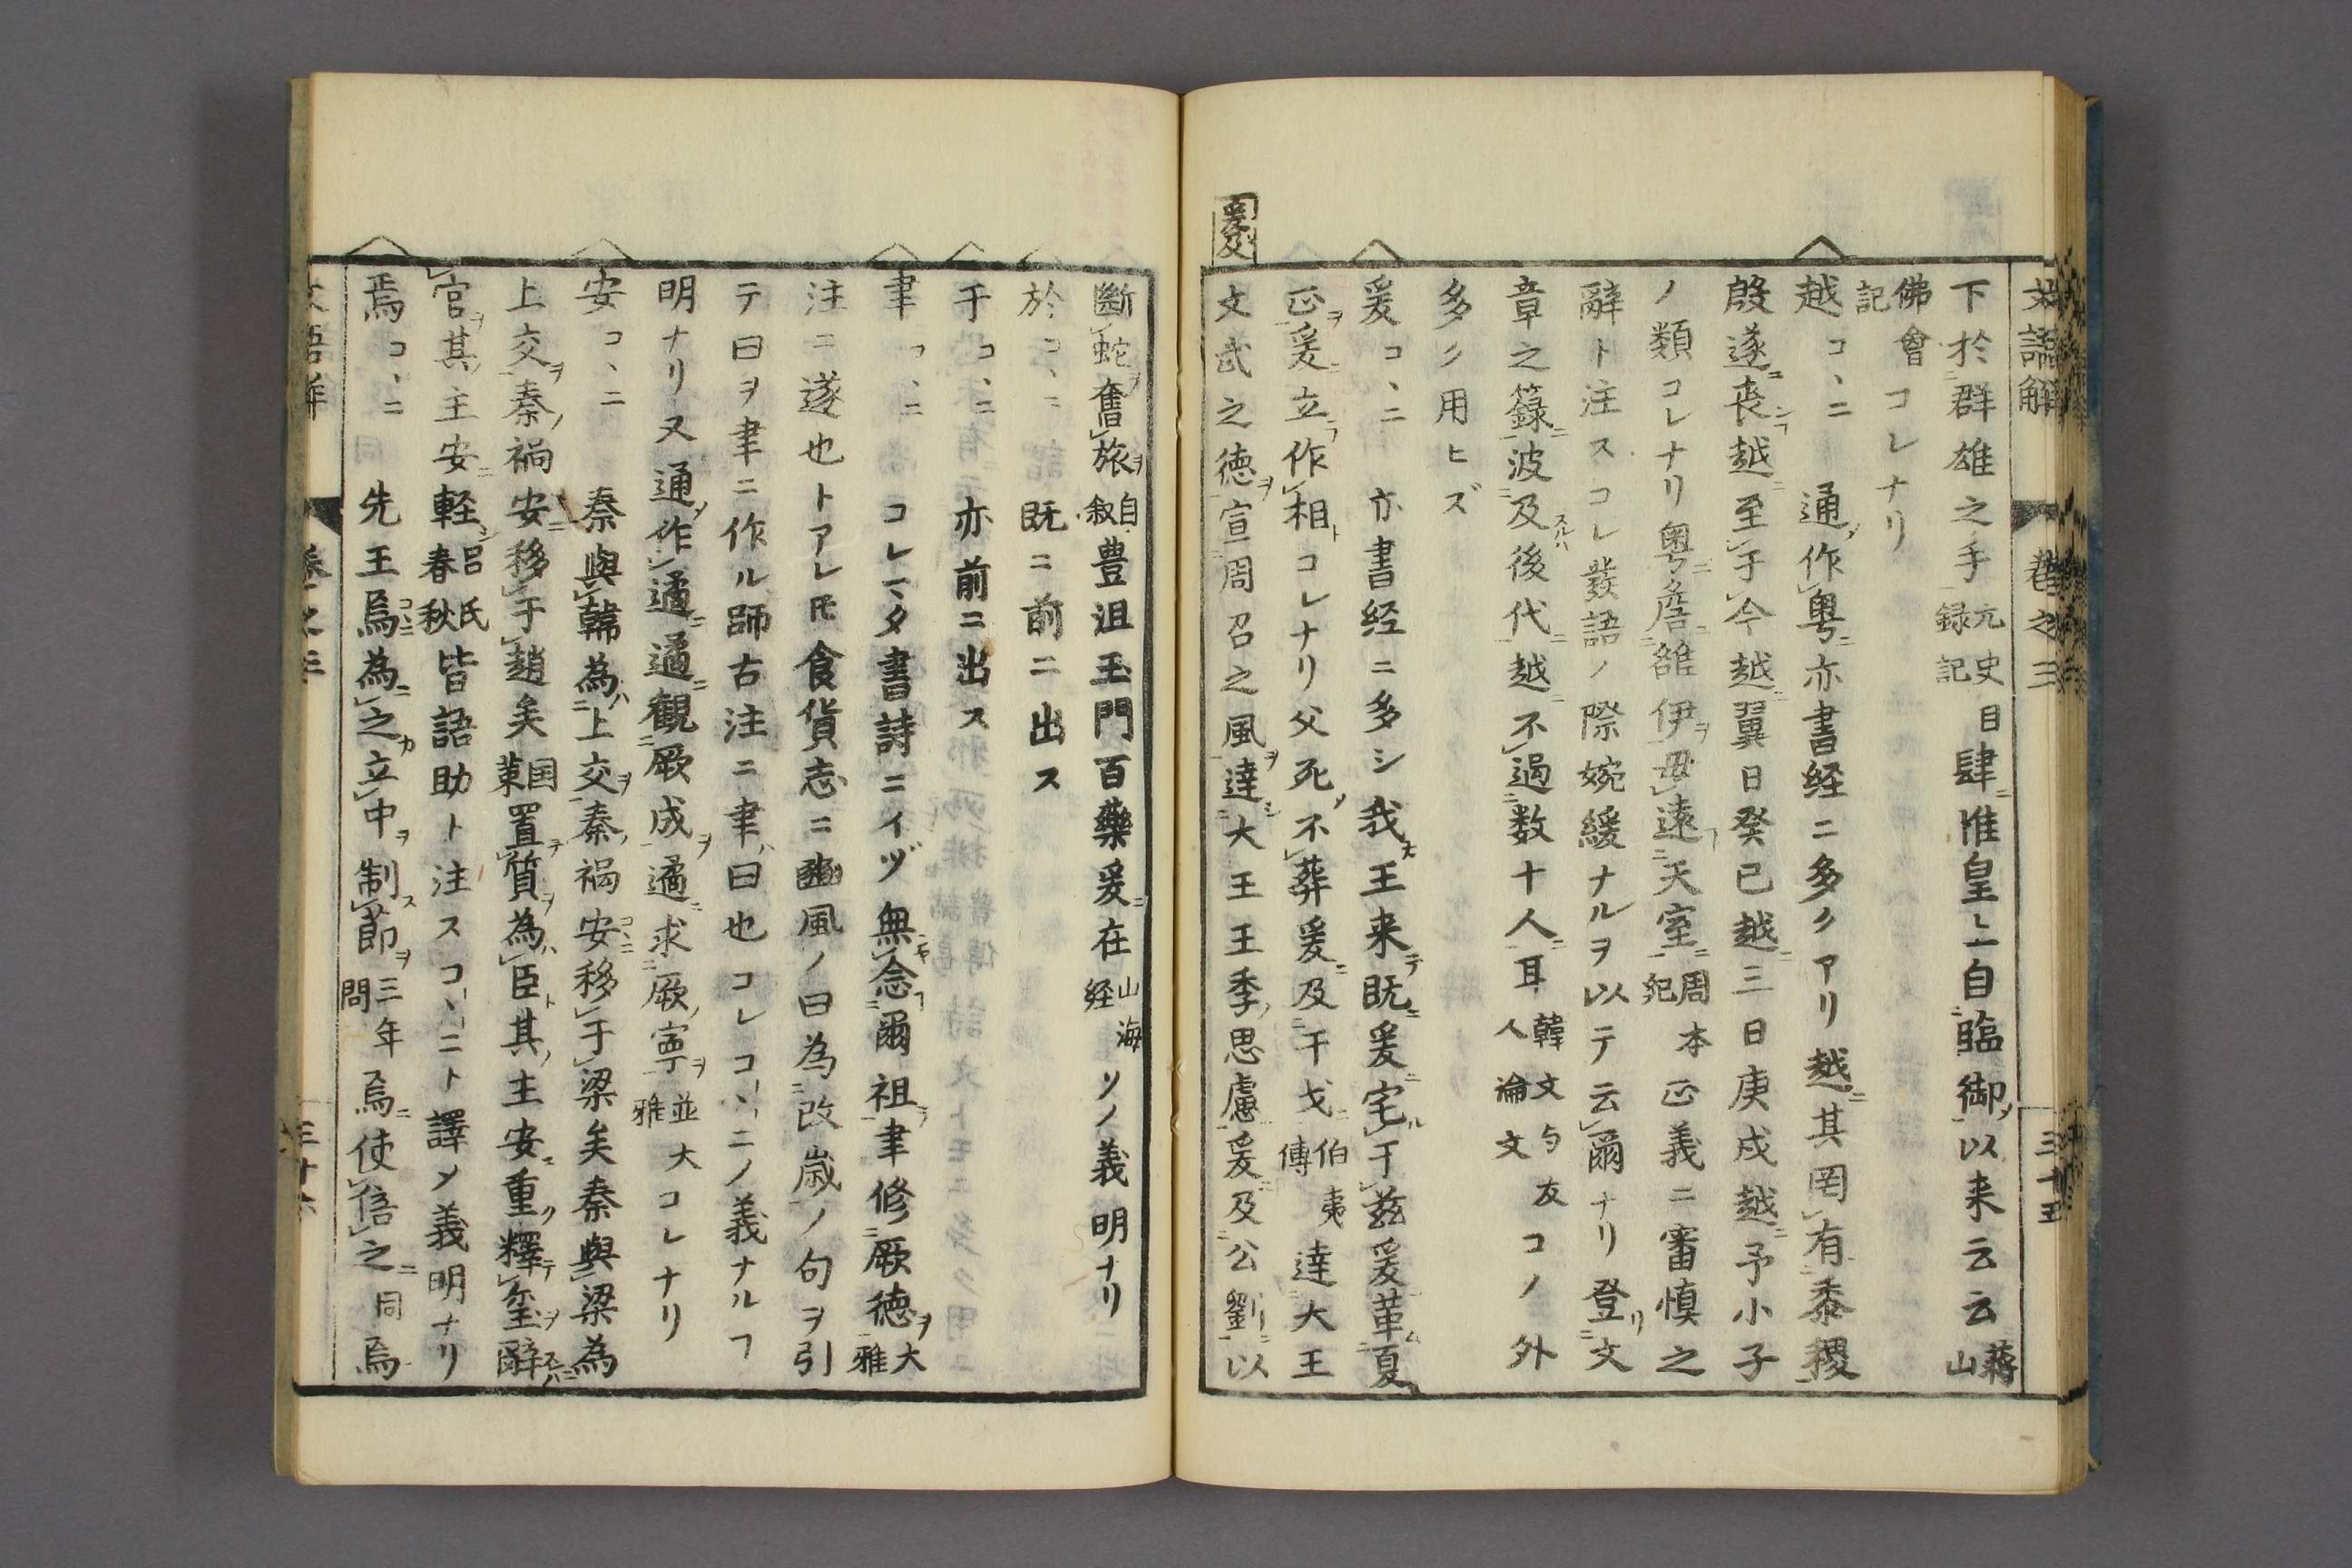 文語解 巻之三 三十五
下於群雄之手元史目録記肆惟皇〻自臨御以来云云蒋山
佛會記コレナリ
越コヽニ 通作粤亦書経ニ多クアリ越其罔有黍稷
殷遂喪越至于今越翼日癸巳越三日庚戌越予小子
ノ類コレナリ粤詹雒伊毋遠天室周本紀正義ニ審慎之
辭ト注スコレ發語ノ際婉緩ナルヲ以テ云爾ナリ登文
章之籙波及後代越不過数十人耳韓文与友人論文コノ外
多ク用ヒズ
爰コヽニ 亦書経ニ多シ我王来既爰宅于茲爰革夏
正爰立作相コレナリ父死不葬爰及干戈伯夷傳達大王
爰及
文武之徳宣周召之風達大王王季思慮爰及公劉以
斷蛇奮旅自叙豊沮玉門百藥爰在山海経ソノ義明ナリ
於コヽニ 既ニ前ニ出ス
于コヽニ 亦前ニ出ス
聿コヽニ コレマタ書詩ニイヅ無念爾祖聿修厥徳大雅
注ニ遂也トアレ𪜈食貨志ニ豳風ノ曰為改歳ノ句ヲ引
テ曰ヲ聿ニ作ル師古注ニ聿曰也コレコヽニノ義ナルヿ
明ナリ又通作遹遹觀厥成遹求厥寧並大雅コレナリ
安コヽニ 秦與韓為上交秦禍安移于梁矣秦與梁為
上交秦禍安移于趙矣国策置質為臣其主安重釋璽辭
官其主安軽呂氏春秋皆語助ト注スコヽニト譯メ義明ナリ
焉コヽニ 先王焉為之立中制節三年問焉使倍之同焉
文語解 巻之三 三十六